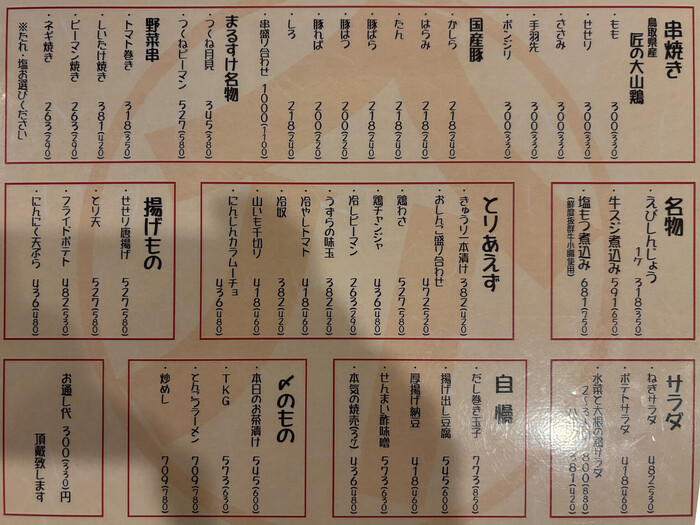 串焼き
鳥取県産
匠の大山鶏
・もも 300(330)
・せせり 300(330)
・ささみ 300(330)
・手羽先 300(330)
・ボンジリ 300(330)
国産豚
・かしら 218(240)
・はらみ 218(240)
・たん 218(240)
・豚ばら 218(240)
・豚はつ 200(220)
・豚ればー 200(220)
・しろ 218(240)
・串盛り合わせ 1000(1100)
まるすけ名物
・つくね月見 345(380)
・つくねピーマン 527(580)
野菜串
・トマト巻き 318(350)
・しいたけ焼き 381(420)
・ピーマン焼き 263(290)
・ネギ焼き 263(290)
※たれ・塩お選びください
名物
・えびしんじょう
1ヶ 318(350)
・牛スジ煮込み 591(650)
・塩もつ煮込み 681(750)
(鮮度抜群牛小腸使用)
とりあえず
・きゅうり一本漬け 382(420)
・おしんこ盛り合わせ
472(520)
・鶏わさ 527(580)
・鶏チャンジャ 436(480)
・冷しピーマン 263(290)
・うずらの味玉 382(420)
・冷やしトマト 418(460)
・冷奴 382(420)
・山いも千切り 418(460)
・にんじんカラムーチョ
436(480)
揚げもの
・せせり唐揚げ 527(580)
・とり天 527(580)
・フライドポテト 482(530)
・にんにく天ぷら 436(480)
サラダ
・ねぎサラダ 482(530)
・ポテトサラダ 418(460)
・水菜と大根の鶏サラダ
2〜3人 800(880)
381(420)
自慢
・だし巻き玉子 773(850)
・揚げ出し豆腐 545(600)
・厚揚げ納豆 418(460)
・せんまい酢味噌 573(630)
・本気の焼売(3ケ) 436(480)
〆のもの
・本日のお茶漬け 545(600)
・TKG 573(630)
・とんこつラーメン 709(780)
・炒めし 709(780)
お通し代 300(330)円
頂戴致します